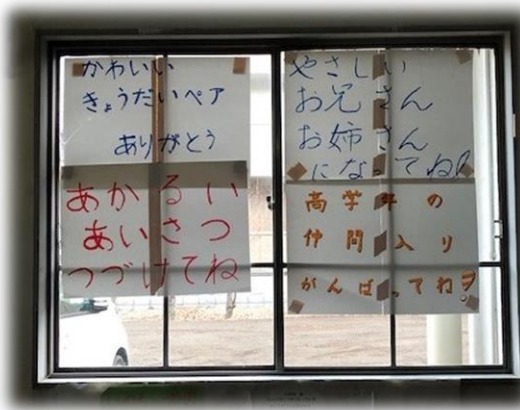 かわいい
きょうだいペア
ありがとう
あかるい
あいさつ
つづけてね
やさしい
お兄さん
お姉さん
になってね!
高学年の
仲間入り
がんばってね!